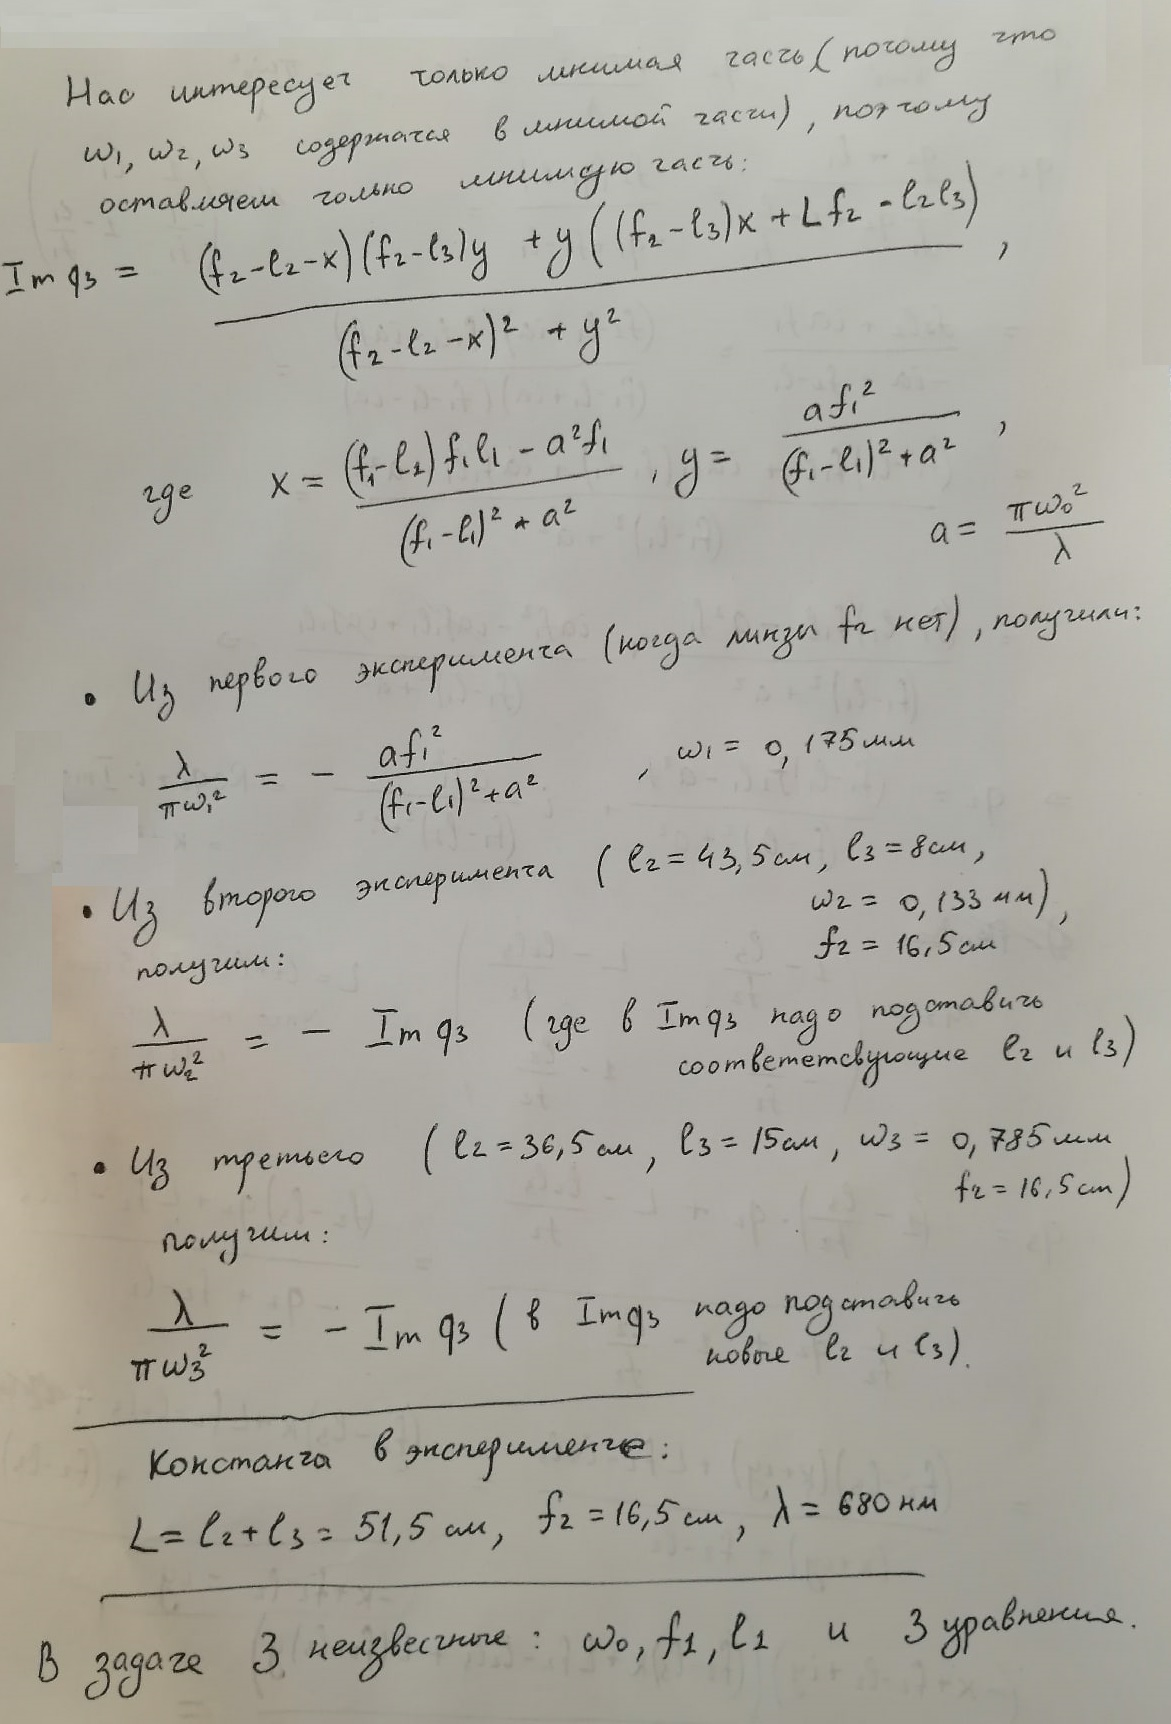 Нас интересует только мнимая часть (потому что
ω1, ω2, ω3 содержатся в мнимой части), поэтому
оставляем только мнимую часть:
Im q3 = ((f2-l2-x)(f2-l3)y + y((f2-l3)x + Lf2 - l2l3)) / ((f2-l2-x)² + y²),
где x = ((f1-l2)f1l1 - a²f1) / ((f1-l1)² + a²), y = af1² / ((f1-l1)² + a²),
a = πω0² / λ
• Из первого эксперимента (когда линзы f2 нет), получили:
λ / πω1² = - af1² / ((f1-l1)² + a²), ω1 = 0,175мм
• Из второго эксперимента (l2 = 43,5см, l3 = 8см,
ω2 = 0,133 мм),
f2 = 16,5см
получим:
λ / πω2² = - Im q3 (где в Imq3 надо подставить
соответетсвующие l2 и l3)
• Из третьего (l2 = 36,5см, l3 = 15см, ω3 = 0,785мм
f2 = 16,5см)
получим:
λ / πω3² = - Im q3 (в Imq3 надо подставить
новые l2 и l3).
Константа в эксперименте:
L = l2+l3 = 51,5 см, f2 = 16,5 см, λ = 680 нм
В задаче 3 неизвестные: ω0, f1, l1 и 3 уравнения.